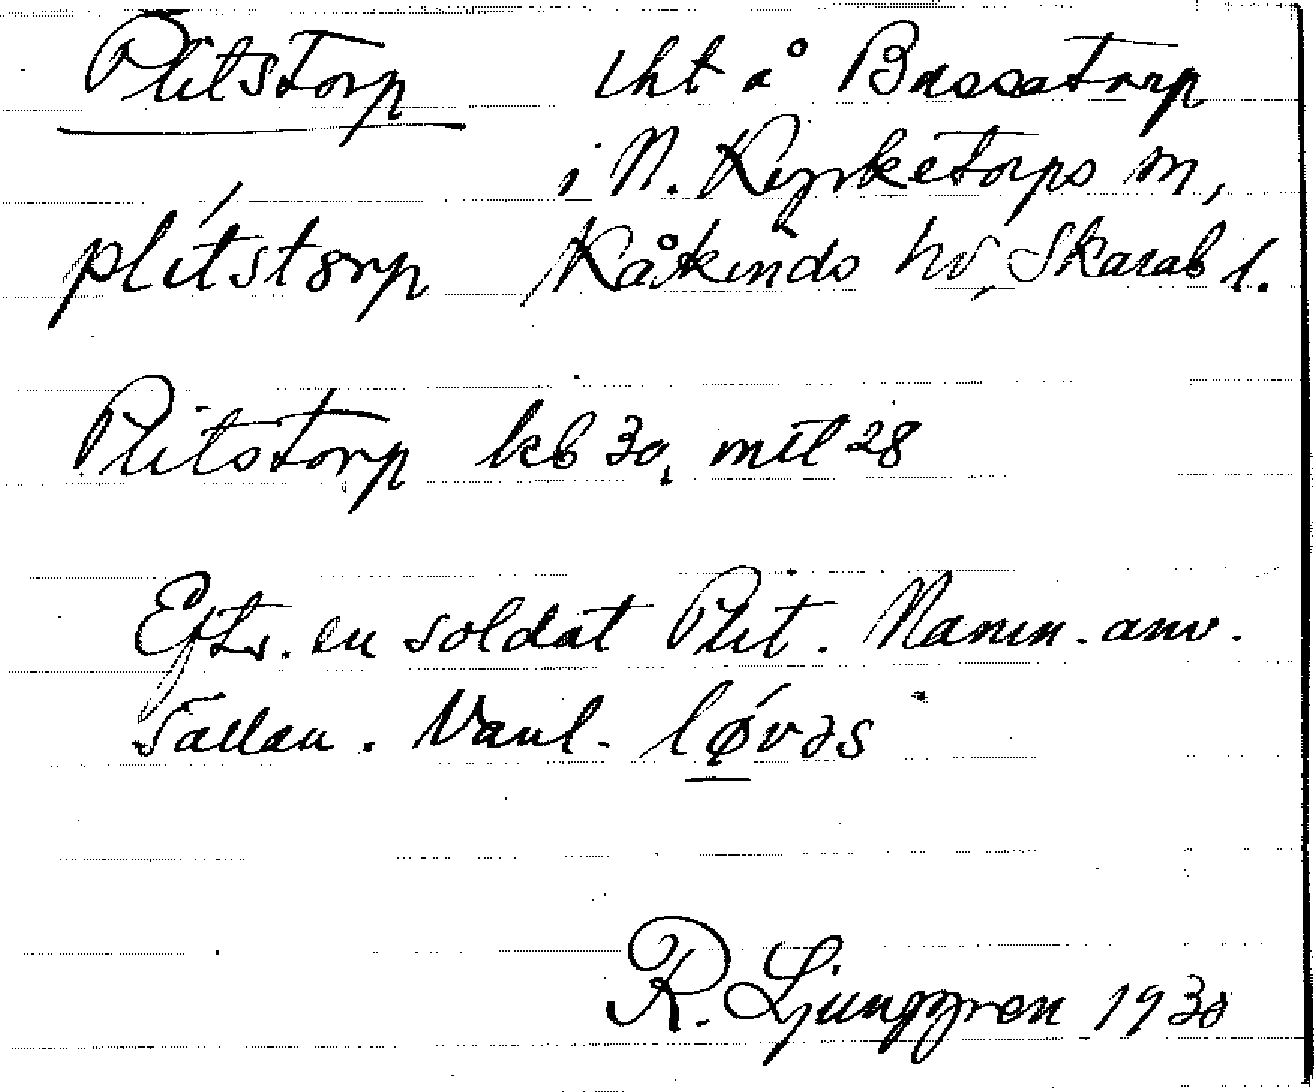 Plitstorp lht å Bossatorp
i N. Kyrketorps sn,
plítstørp Kåkinds hd, Skarab l.
Plitstorp kb 30, mtl 28
Eft. en soldat Plit. Namn. anv.
sällan. Vanl. lǿvəs
R. Ljunggren 1930